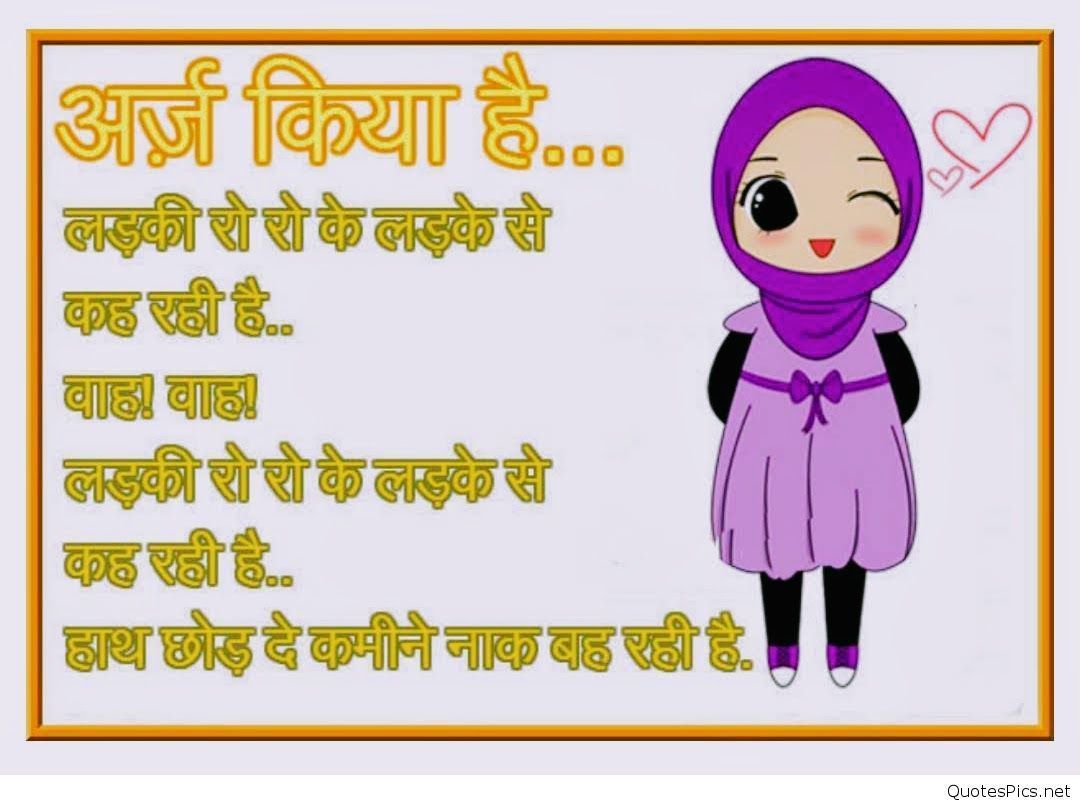 अर्ज़ किया है...
लड़की रो रो के लड़के से
कह रही है..
वाह! वाह!
लड़की रो रो के लड़के से
कह रही है..
हाथ छोड़ दे कमीने नाक बह रही है.
QuotesPics.net